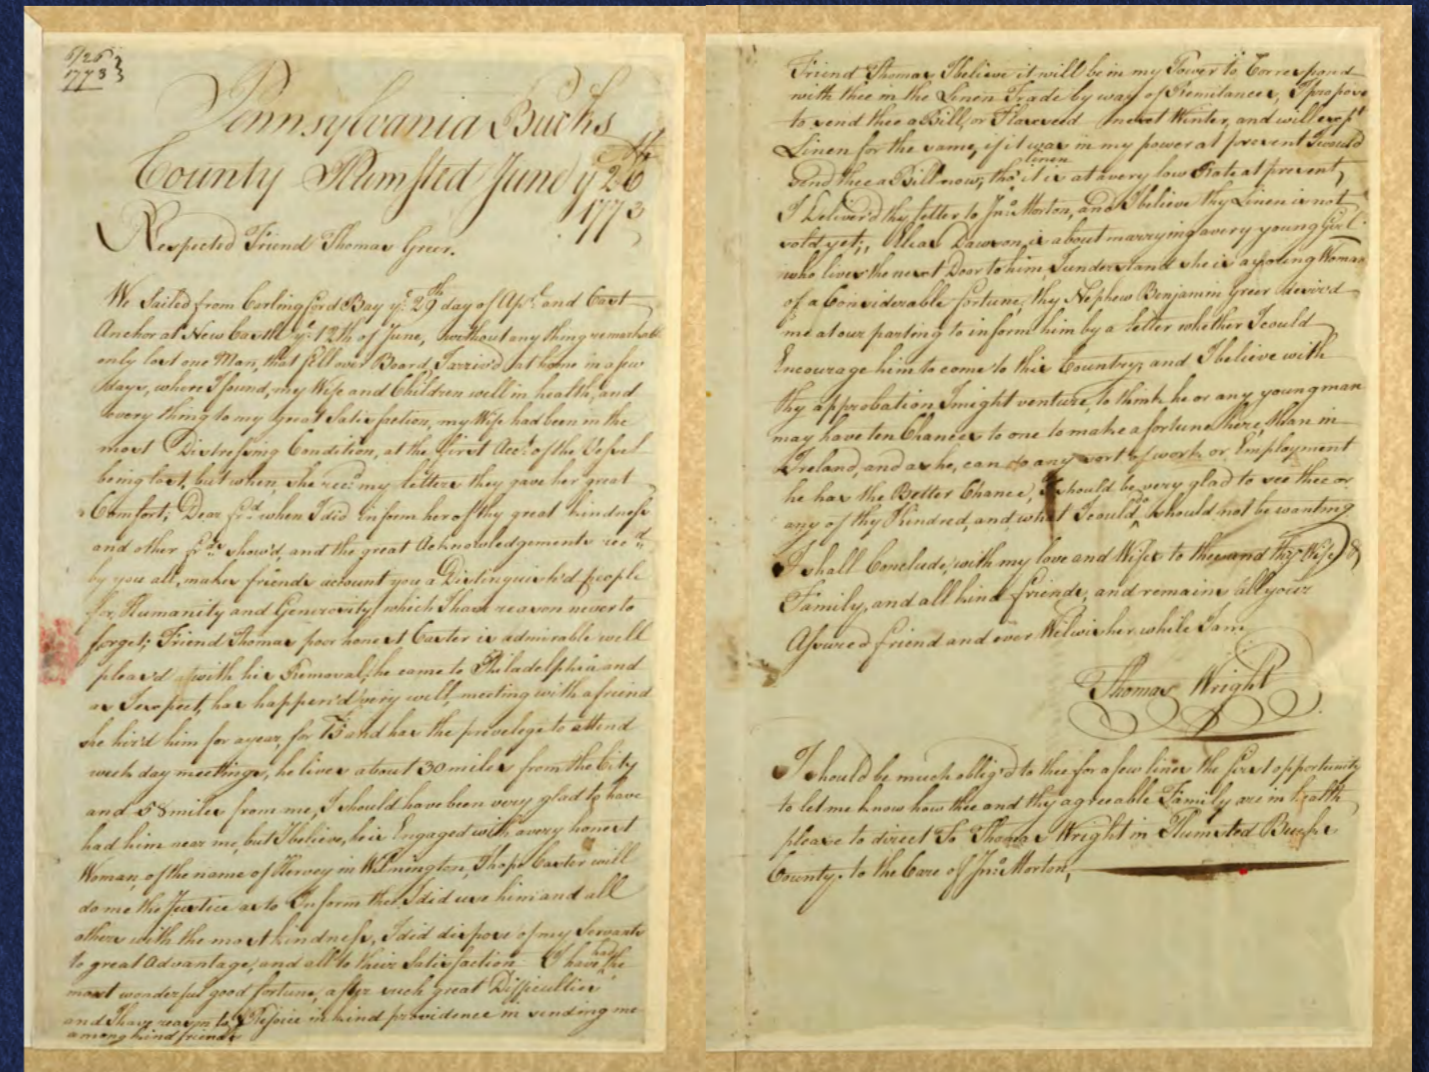 6/26
1773
Pennsylvania Bucks
County Plumsted June ye 26th
1773
Respected Friend Thomas Greer.
We Sailed from Carlingford Bay ye 29th day of Apl. and Cast
Anchor at New Castle ye 12th of June, without any thing remarkable
only lost one Man, that fell over Board, I arriv'd at home in a few
days, where I found, my Wife and Children well in health, and
every thing to my great Satisfaction, my Wife had been in the
most Distressing Condition, at the first Acct. of the Vessel
being lost, but when she recd. my letters they gave her great
Comfort; Dear frd. when I did inform her of thy great kindness
and other frds. show'd and the great Acknowledgements recd.
by you all, makes friends account you a Distinguish'd people
for Humanity and Generosity, which I have reason never to
forget; Friend Thomas poor honest Caster is admirable well
pleas'd with his Removal, he came to Philadelphia and
as I expect, has happen'd very well, meeting with a friend
she hir'd him for a year, for 15 and has the privelege to attend
week day meetings, he lives about 30 miles from the City
and 58 miles from me, I should have been very glad to have
had him near me, but I believe, he is Engaged with a very honest
Woman, of the name of Hervey in Wilmington, I hope Caster will
do me the Justice as to Inform thee I did use him and all
others with the most kindness, I did dispose of my Servants
to great Advantage, and all to their Satisfaction I have had the
most wonderful good fortune, after such great Difficulties
and I have reason to Rejoice in kind providence in sending me
among kind friends
Friend Thomas, I believe it will be in my Power to Correspond
with thee in the Linen Trade by way of Remitances, I propose
to send thee a Bill, or Flaxseed next Winter, and will expt.
Linen for the same, if it was in my power at present I would
send thee a Bill now, tho' linen it is at a very low Rate at present,
I deliver'd thy letter to Jno. Morton, and I believe thy Linen is not
sold yet; Elias Dawson, is about marrying a very young Girl
who lives the next Door to him, I understand she is a young Woman
of a Considerable fortune, thy Nephew Benjamin Greer desir'd
me at our parting to inform him by a letter whether I could
Encourage him to come to this Country, and I believe with
thy approbation I might venture, to think he or any young man
may have ten Chances to one to make a fortune here, than in
Ireland, and as he, can do any sort of work or Employment
he has the Better Chance, I should be very glad to see thee or
any of thy Kindred, and what I could do, should not be wanting
I shall Conclude, with my love and Wifes to thee and thy Wife &
Family, and all kind friends, and remains all your
Assured friend and ever Welwisher while I am
Thomas Wright
I should be much oblig'd to thee for a few lines the first opportunity
to let me know how thee and thy agreeable Family are in health
please to direct To Thomas Wright in Plumsted Bucks
County. to the Care of Jno. Morton,